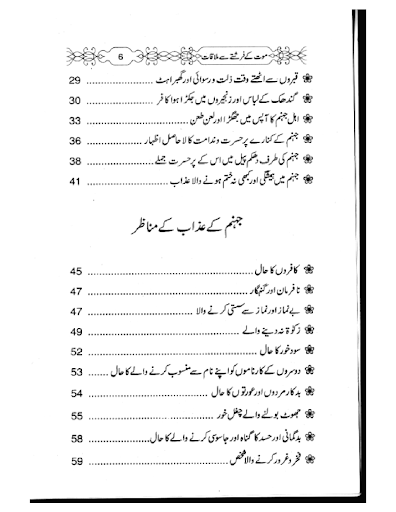 موت کے فرشتے سے ملاقات 6
قبروں سے اٹھتے وقت ذلت ورسوائی اور گھبراہٹ ........ 29
گندھک کے لباس اور زنجیروں میں جکڑا ہوا کافر ........ 30
اہل جہنم کا آپس میں جھگڑا اور لعن طعن ........ 33
جہنم کے کنارے پر حسرت وندامت کا لا حاصل اظہار ........ 36
جہنم کی طرف دھکم پیل میں اس کے پر حسرت جملے ........ 38
جہنم میں ہمیشگی اور کبھی نہ ختم ہونے والا عذاب ........ 41
جہنم کے عذاب کے مناظر
کافروں کا حال ........ 45
نافرمان اور گنہگار ........ 47
بے نماز اور نماز سے سستی کرنے والا ........ 47
زکوۃ نہ دینے والے ........ 49
سود خور کا حال ........ 52
دوسروں کے کارناموں کو اپنے نام سے منسوب کرنے والے کا حال ........ 53
بدکار مردوں اور عورتوں کا حال ........ 54
جھوٹ بولنے والے چغل خور ........ 55
بدگمانی اور حسد کا گناہ اور جاسوسی کرنے والے کا حال ........ 58
فخر و غرور کرنے والا شخص ........ 59